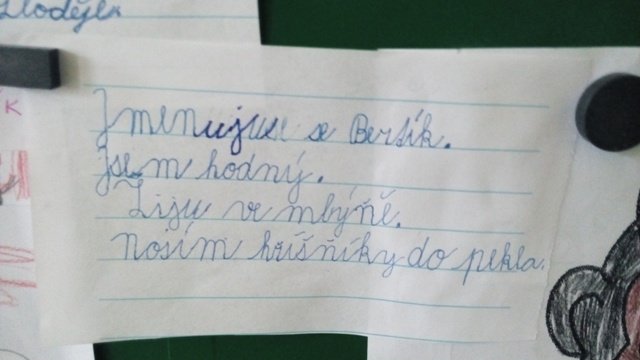 Zloděj
K
Jmenujuse se Bertík.
Jsem hodný.
Žiju ve mlýně.
Nosím hříšníky do pekla.